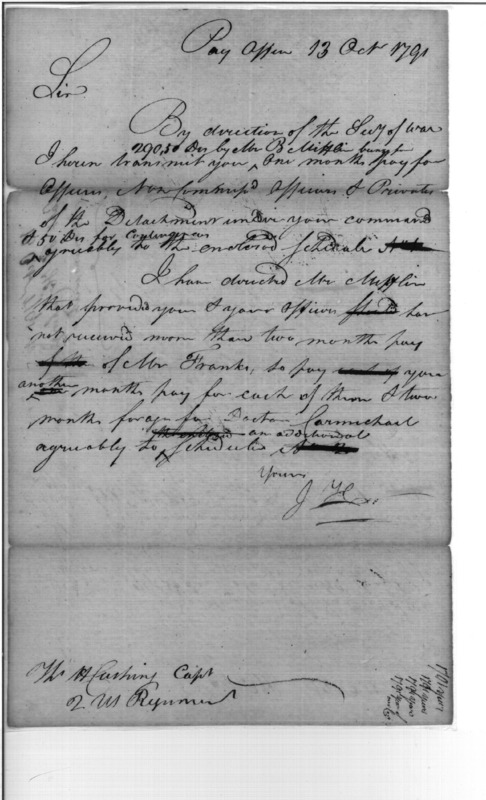 Pay Office 13 Octr 1791
Sir
By direction of the Secy of War
290,50 Drs by Mr B Mifflin
I herein transmit you ^ One months pay for
Officers, Non Commisd Officers & Privates
of the Detachment under your command
& 50 Drs for Contingences
agreeably to the enclosed Schedule
I have directed Mr Mifflin
that provided you & your Officers have
not received more than two months pay
of Mr Franks, to pay you
another months pay for each of them & two
months forage for Doctor Carmichael
an additional
agreeably to ^ Schedule
Yours
J H
Ths H Cushing Capt
2 US Regiment